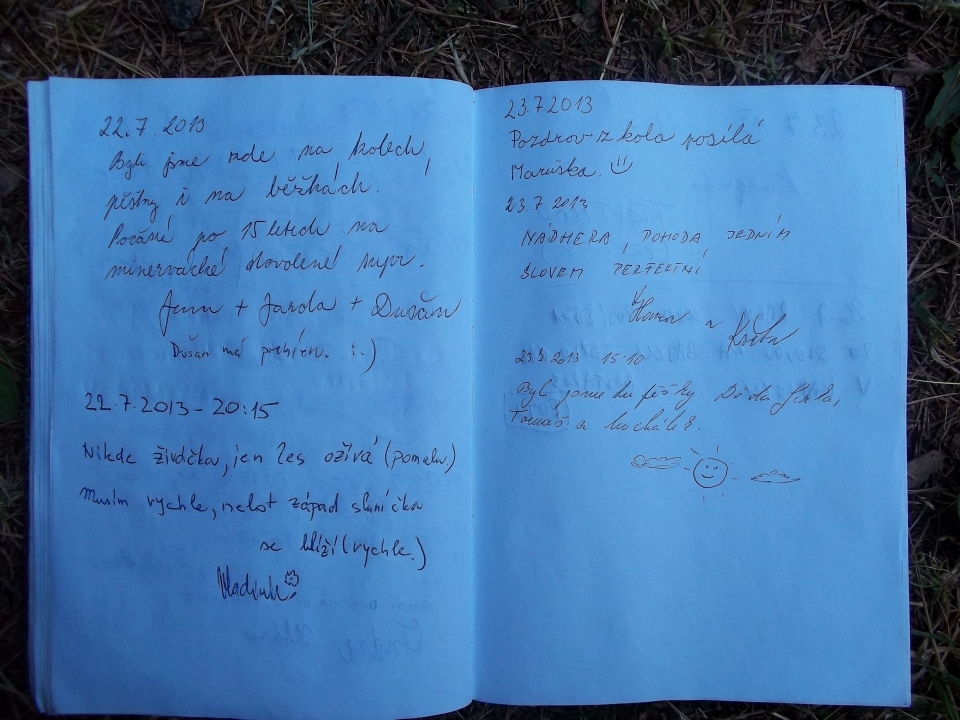 22.7. 2013
Byli jsme zde na kolech,
pěšky i na běžkách.
po 15 letech na
dovolené supr.
+ Jarda + Dušan
Dušan má
22.7.2013 - 20:15
Nikde živáčka, jen les ožívá (pomalu)
Musím rychle, neboť západ sluníčka
se blíží (rychle.)
23.7.2013
Pozdrov z kola posílá
Maruška.
23.7 2013
NÁDHERA, POHODA, JEDNÍM
SLOVEM PERFEKTNÍ
Hanka a
2013 15.10
Byl jsme tu pěšky. Děda
Tomáš a